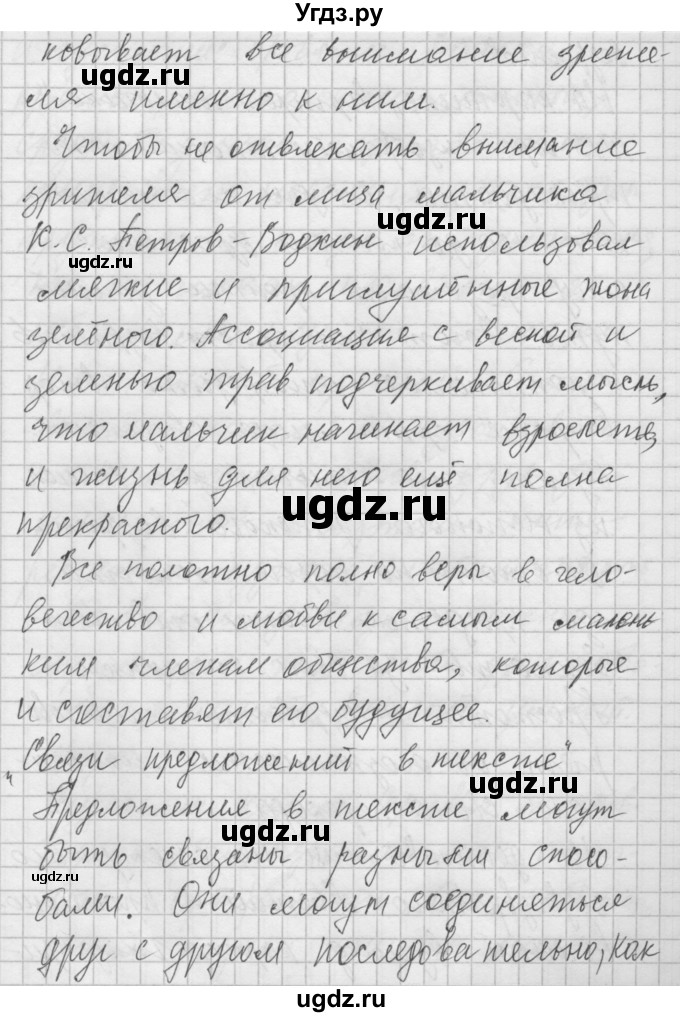 Угдз.ру
ковывает все внимание зрите-
ugdz.ru
ля именно к ним.
Чтобы не отвлекать внимание
зрителя от лица мальчика
ugdz.ru
К.С. Петров-Водкин использовал
ugdz.ru
мягкие и приглушённые тона
зелёного. Ассоциация с весной и
зеленью трав подчеркивает мысль,
что мальчик начинает взрослеть,
и жизнь для него ещё полна
ugdz.ru
прекрасного.
Все полотно полно веры в чело-
вечество и любви к самым малень
ким членам общества, которые
и составят его будущее.
„Связи предложений в тексте"
ugdz.ru
Предложения в тексте могут
ugdz.ru
быть связаны разными спосо-
ugdz.ru
бами. Они могут соединяться
ugdz.ru
друг с другом последовательно, как
ugdz.ru